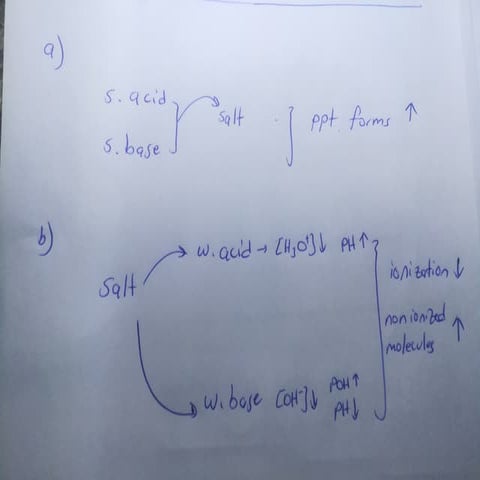 a)
s. acid
salt
s. base
ppt. forms ↑
b)
Salt
w. acid → [H₃O⁺]↓ PH↑
w. base [OH⁻]↓ POH↑
PH↓
ionization ↓
nonionized ↑
molecules